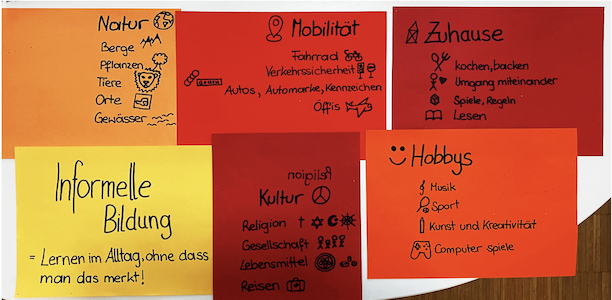 Natur
Berge
Pflanzen
Tiere
Orte
Gewässer
Mobilität
Fahrrad
Verkehrssicherheit
Autos, Automarke, Kennzeichen
Öffis
Zuhause
kochen, backen
Umgang miteinander
Spiele, Regeln
Lesen
Informelle
Bildung
= Lernen im Alltag, ohne dass
man das merkt!
Kultur
Religion
Gesellschaft
Lebensmittel
Reisen
Hobbys
Musik
Sport
Kunst und Kreativität
Computer spiele